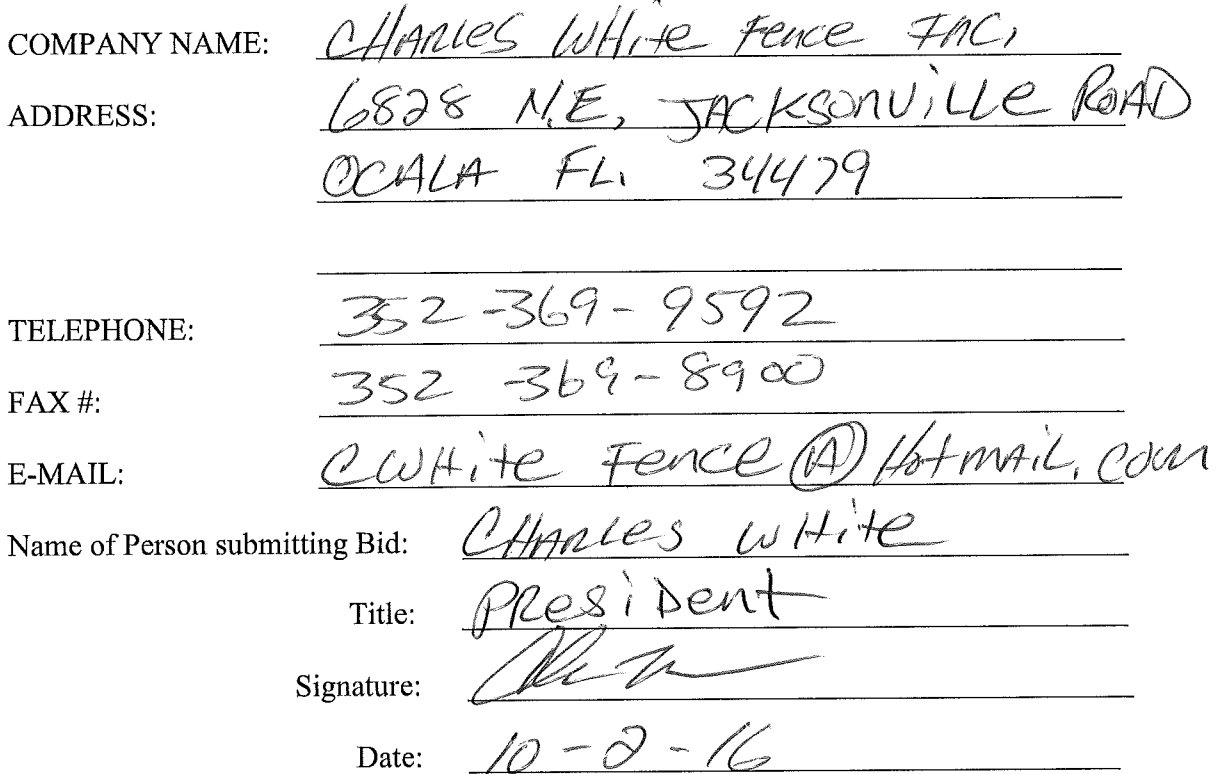 COMPANY NAME: CHARLES WHite Fence INC,
ADDRESS: 6828 N.E, JACKSONVILLe ROAD
OCALA FL. 34479
TELEPHONE: 352-369-9592
FAX #: 352-369-8900
E-MAIL: CWHite Fence @ HotmAiL.com
Name of Person submitting Bid: CHARLes WHite
Title: PResiDent
Signature:
Date: 10-2-16